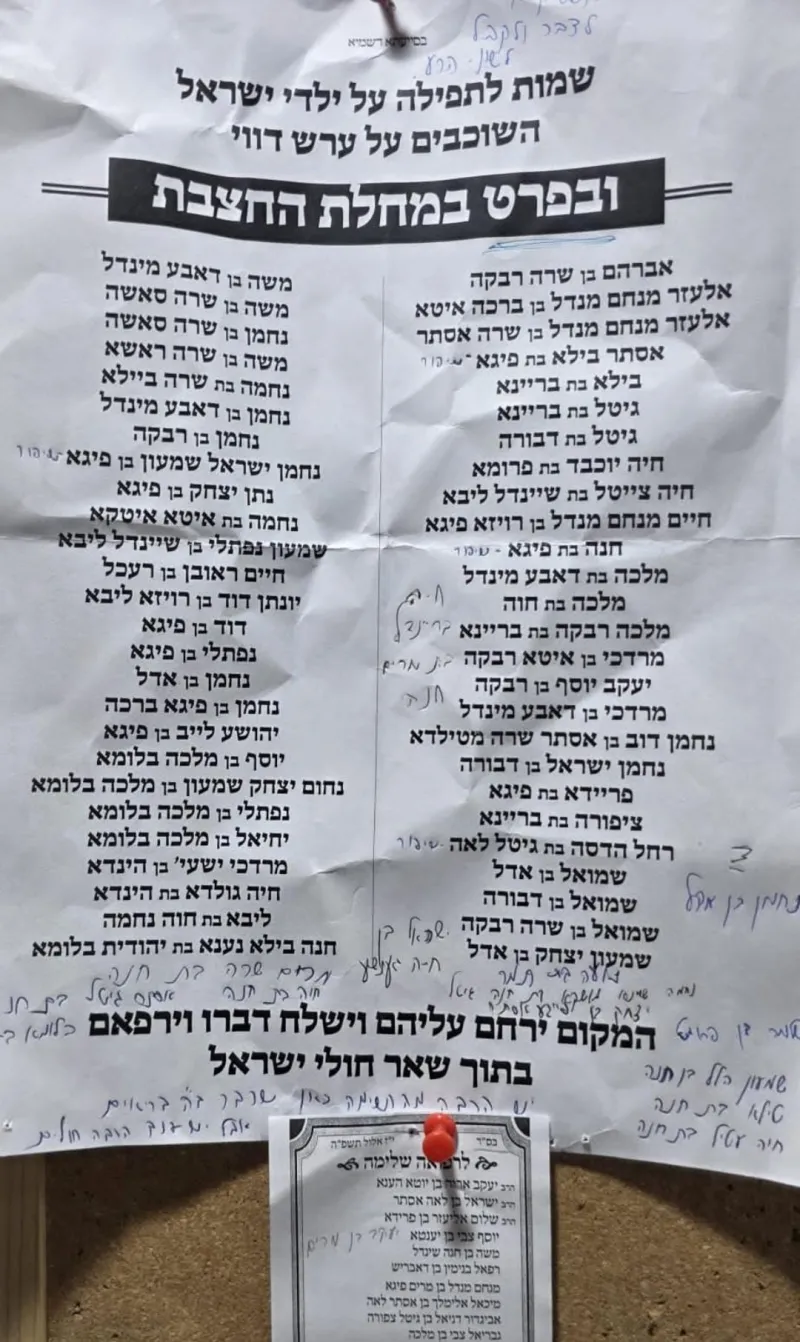 לדבר ולקבל
בסייעתא דשמיא
לשון הרע
שמות לתפילה על ילדי ישראל
השוכבים על ערש דווי
ובפרט במחלת החצבת
אברהם בן שרה רבקה
אלעזר מנחם מנדל בן ברכה איטא
אלעזר מנחם מנדל בן שרה אסתר
אסתר בילא בת פיגא
בילא בת בריינא
גיטל בת בריינא
גיטל בת דבורה
חיה יוכבד בת פרומא
חיה צייטל בת שיינדל ליבא
חיים מנחם מנדל בן רויזא פיגא
חנה בת פיגא
מלכה בת דאבע מינדל
מלכה בת חוה
מלכה רבקה בת בריינא
מרדכי בן איטא רבקה
יעקב יוסף בן רבקה
מרדכי בן דאבע מינדל
נחמן דוב בן אסתר שרה מטילדא
נחמן ישראל בן דבורה
פריידא בת פיגא
ציפורה בת בריינא
רחל הדסה בת גיטל לאה
שמואל בן אדל
שמואל בן דבורה
שמואל בן שרה רבקה
שמעון יצחק בן אדל
חיה
בריינדל
בת מרים
חנה
נחמן בן אדל
משה בן דאבע מינדל
משה בן שרה סאשה
נחמן בן שרה סאשה
משה בן שרה ראשא
נחמה בת שרה ביילא
נחמן בן דאבע מינדל
נחמן בן רבקה
נחמן ישראל שמעון בן פיגא
נתן יצחק בן פיגא
נחמה בת איטא איטקא
שמעון נפתלי בן שיינדל ליבא
חיים ראובן בן רעכל
יונתן דוד בן רויזא ליבא
דוד בן פיגא
נפתלי בן פיגא
נחמן בן אדל
נחמן בן פיגא ברכה
יהושע לייב בן פיגא
יוסף בן מלכה בלומא
נחום יצחק שמעון בן מלכה בלומא
נפתלי בן מלכה בלומא
יחיאל בן מלכה בלומא
מרדכי ישעי' בן הינדא
חיה גולדא בת הינדא
ליבא בת חוה נחמה
חנה בילא נענא בת יהודית בלומא
ישראל בן
מרים שרה בת חנה
חיה בת חנה
המקום ירחם עליהם וישלח דברו וירפאם
בתוך שאר חולי ישראל
שמעון הלל בן חנה
טילא בת חנה
חיה עטיל בת חנה
יש הרבה מהרשימה כאן שכבר ב"ה בריאים
אבל יש עוד הרבה חולים
בס"ד
י"ז אלול תשפ"ה
לרפואה שלימה
הרב יעקב אריה בן יוטא הענא
הרב ישראל בן לאה אסתר
הרב שלום אליעזר בן פרידא
יוסף צבי בן יענטא
יעקב בן מרים
משה בן חנה שינדל
רפאל בנימין בן דאבריש
מנחם מנדל בן מרים פיגא
מיכאל אלימלך בן אסתר לאה
אביגדור דניאל בן גיטל צפורה
גבריאל צבי בן מלכה